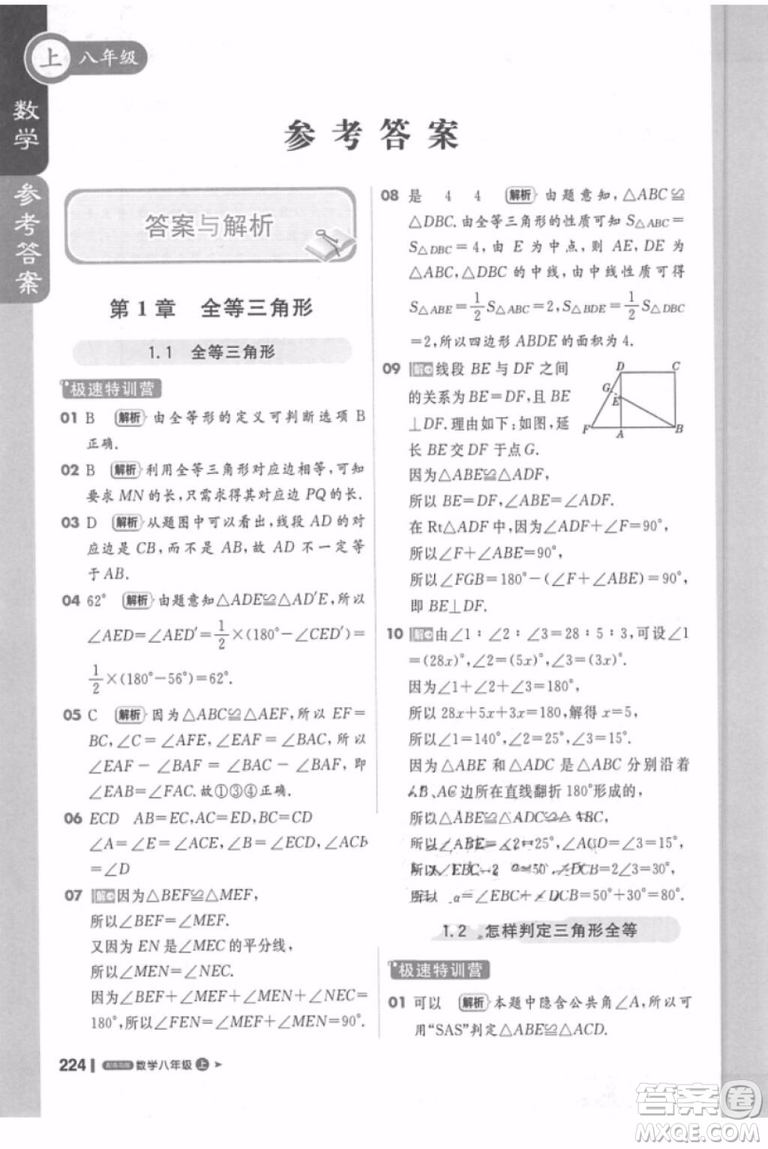 上 八年级
数学
参考答案
参考答案
答案与解析
第1章 全等三角形
1.1 全等三角形
极速特训营
01 B 解析 由全等形的定义可判断选项 B
正确.
02 B 解析 利用全等三角形对应边相等,可知
要求 MN 的长,只需求得其对应边 PQ 的长.
03 D 解析 从题图中可以看出,线段 AD 的对
应边是 CB,而不是 BC,故错误的结论是 AD
等于 AB.
04 62° 解析 由题意知△ADE≌△AD′E,所以
∠AED=∠AED′=1/2×(180°-∠CED′)=
1/2×(180°-56°)=62°.
05 C 解析 因为△ABC≌△AEF,所以 EF=
BC,∠C=∠AFE,∠EAF=∠BAC,所以
∠EAF-∠BAF=∠BAC-∠BAF,所以
∠EAB=∠FAC.故①③④正确.
06 ECD AB=EC,AC=ED,BC=CD
∠A=∠E=∠ACE,∠B=∠ECD,∠ACB
=∠D
07 解 因为△BEF≌△MEF,
所以∠BEF=∠MEF.
又因为 EN 是∠MEC 的平分线,
所以∠MEN=∠NEC.
因为∠BEF+∠MEF+∠MEN+∠NEC=
180°,所以∠NEF=∠MEF+∠MEN=90°.
08 是 4 4 解析 由题意知,△ABC≌
△DBC.由全等三角形的性质可知 S△ABC=
S△DBC=4,由 E 为中点,所以 AE,DE 为
△ABC、△DBC 的中线,由中线的性质可得
S△ABE=1/2 S△ABC=2,S△BDE=1/2 S△DBC
=2,所以四边形 ABDE 的面积为 4.
09 解 线段 BE 与 DF 之间
的关系为 BE=DF,BE
⊥DF.理由如下:如图,延
长 BE 交 DF 于点 G.
D C G E F A B
因为△ABE≌△ADF,
所以 BE=DF,∠ABE=∠ADF.
在 Rt△ADF 中,因为∠ADF+∠F=90°,
所以∠F+∠ABE=90°,
所以∠FGB=180°-(∠F+∠ABE)=90°,
即 BE⊥DF.
10 解 由∠1∶∠2∶∠3=28∶5∶3,可设∠1
=(28x)°,∠2=(5x)°,∠3=(3x)°.
因为∠1+∠2+∠3=180°,
所以 28x+5x+3x=180,解得 x=5,
所以∠1=140°,∠2=25°,∠3=15°.
因为△ABE 和△ADC 是△ABC 分别沿着
AB、AC 所在的直线翻折 180°形成的,
所以△ABE≌△ADC≌△ABC,
所以∠ABE=∠2=25°,∠ACD=∠3=15°,
所以∠EBC=2∠2=50°,∠DCB=2∠3=30°,
所以∠α=∠EBC+∠DCB=50°+30°=80°.
1.2 怎样判定三角形全等
极速特训营
01 可以 解析 本题中隐含公共角∠A,所以可
用“SAS”判定△ABE≌△ACD.
224 数学八年级 上
答案卷
MXQE.COM